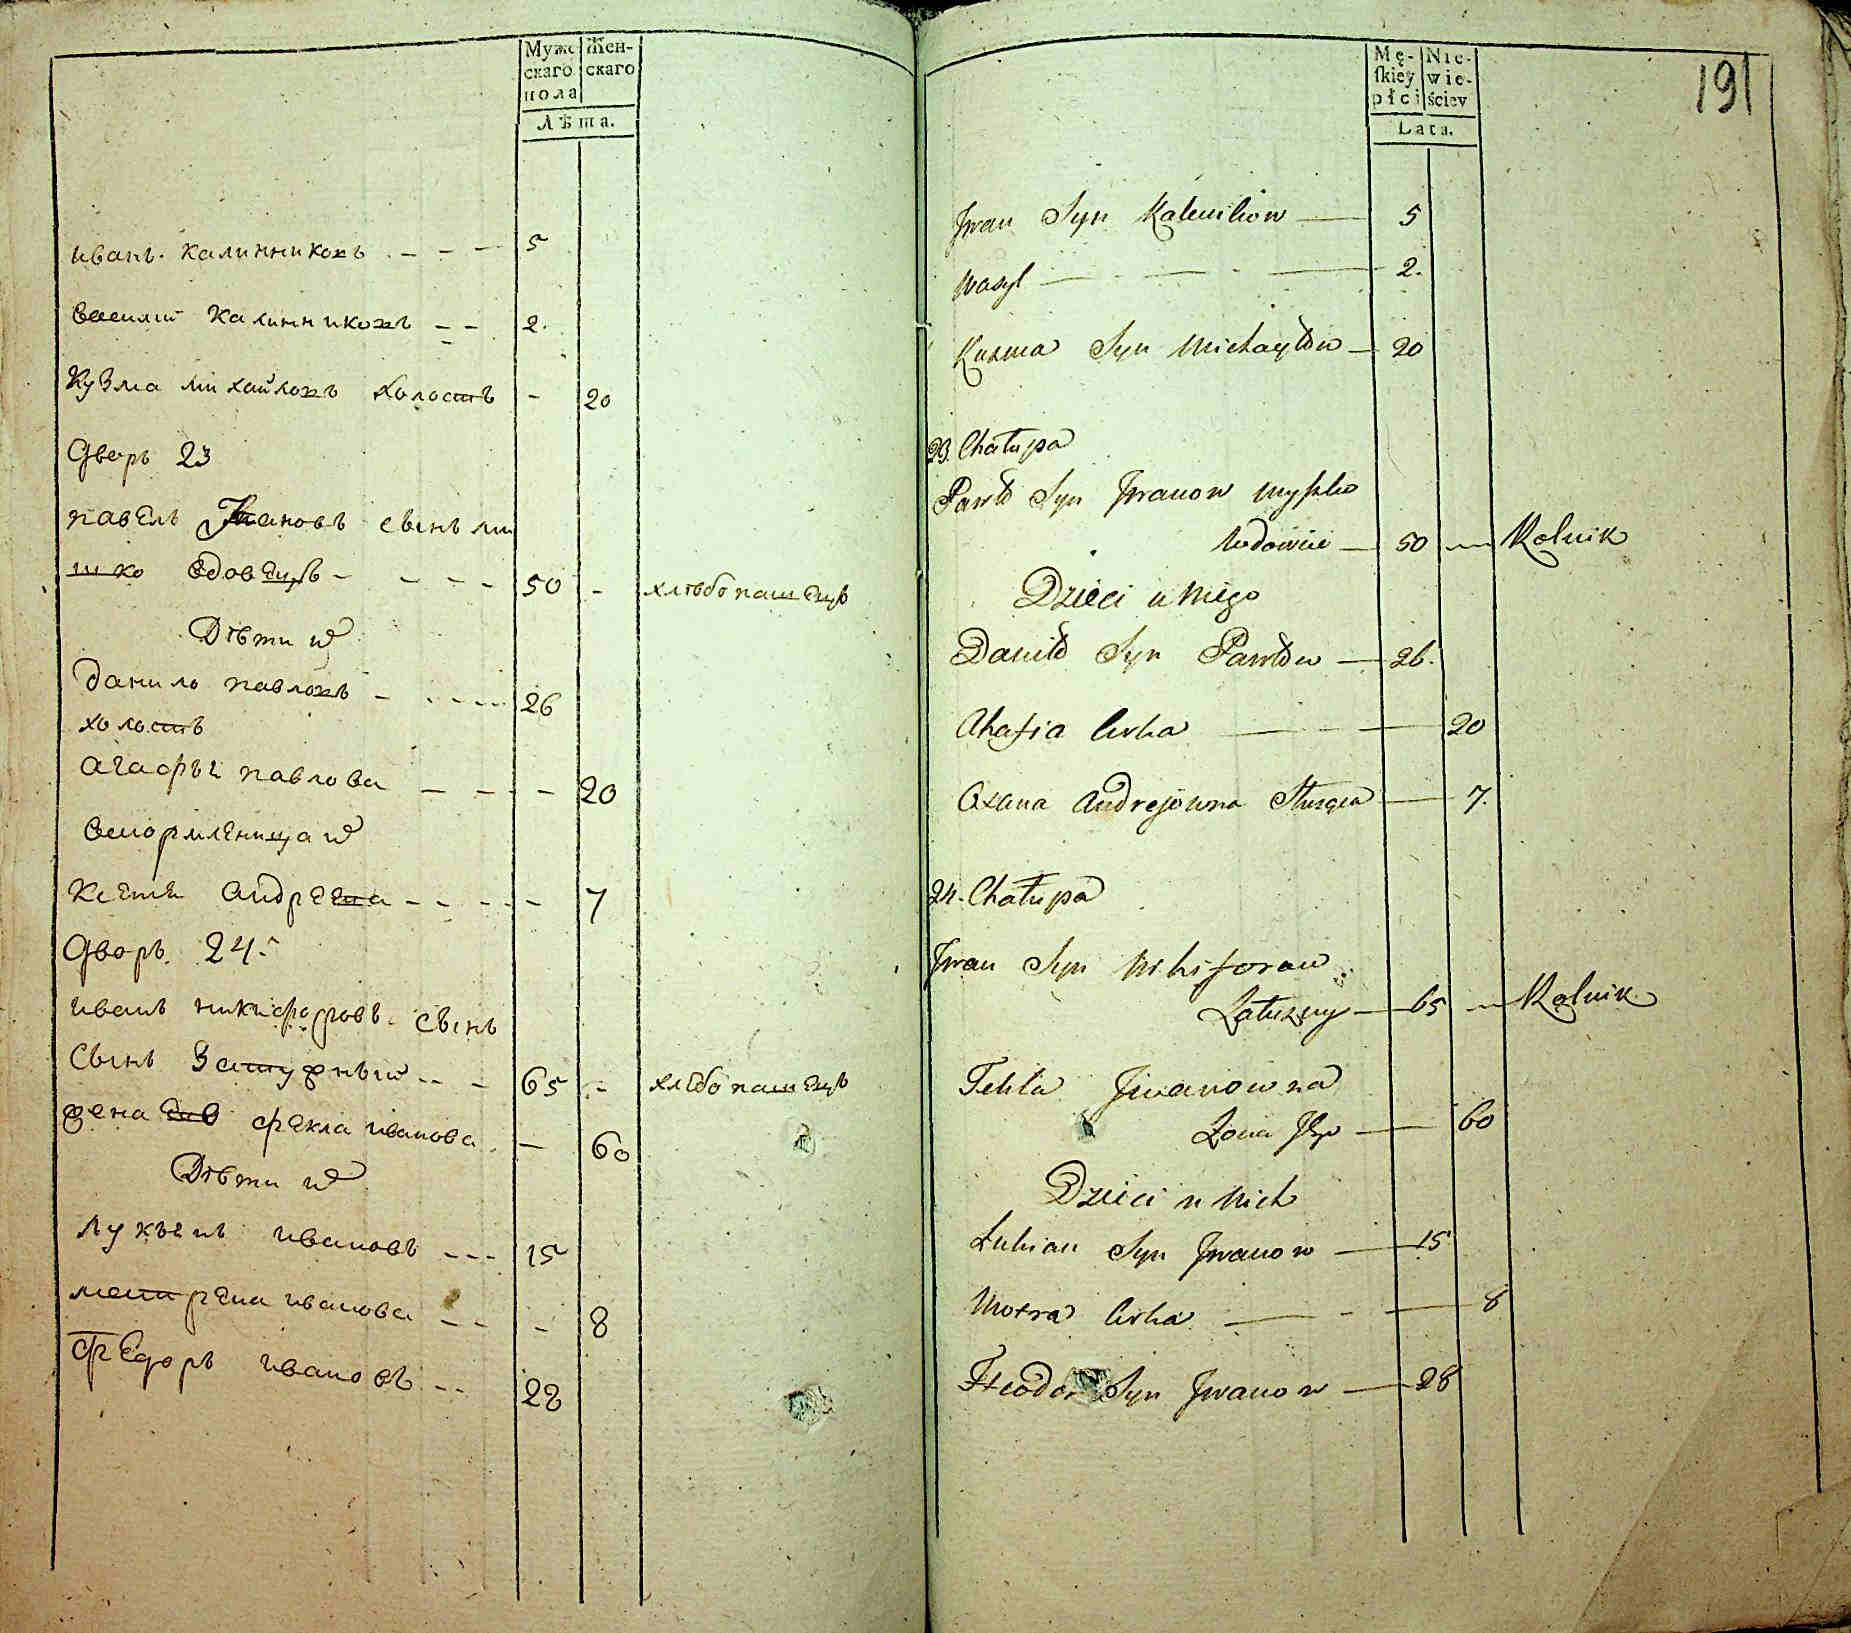 Муже
скаго
пола
Жен-
скаго
Лѣта.
иванъ калинниковъ 5
василий калинниковъ 2
Кузма михайловъ холостъ - 20
дворъ 23
павелъ Ивановъ сынъ ми
шко вдовецъ - 50 - хлѣбопашецъ
Дѣти
данило павловъ - 26
холостъ
агафъи павлова - 20
андреева - 7
дворъ 24
иванъ никифоровъ сынъ
сынъ 65 - хлѣбопашецъ
жена фекла иванова - 60
Дѣти
лукъенъ ивановъ - 15
матрена иванова - 8
федоръ ивановъ - 28
Mę-
skiey
płci
Nie-
wie-
ściey
Lata.
191
Jwan Syn Kalenikow — 5
Wasyl — 2.
Kuzma Syn Michayłow — 20
23. Chałupa
Paweł Syn Jwanow Myszko
Wdowiec — 50 — Rolnik
Dzieci u Niego
Daniło Syn Pawłow — 26.
Ahafia Corka — 20
Oxana Andrejowna — 7.
24. Chałupa
Jwan Syn Nikiforow
65 — Rolnik
Tekla Jwanowna
Zona Jego — 60
Dzieci u Nich
Łukian Syn Jwanow — 15
Motra Corka — 8
Fteodor Syn Jwanow — 28